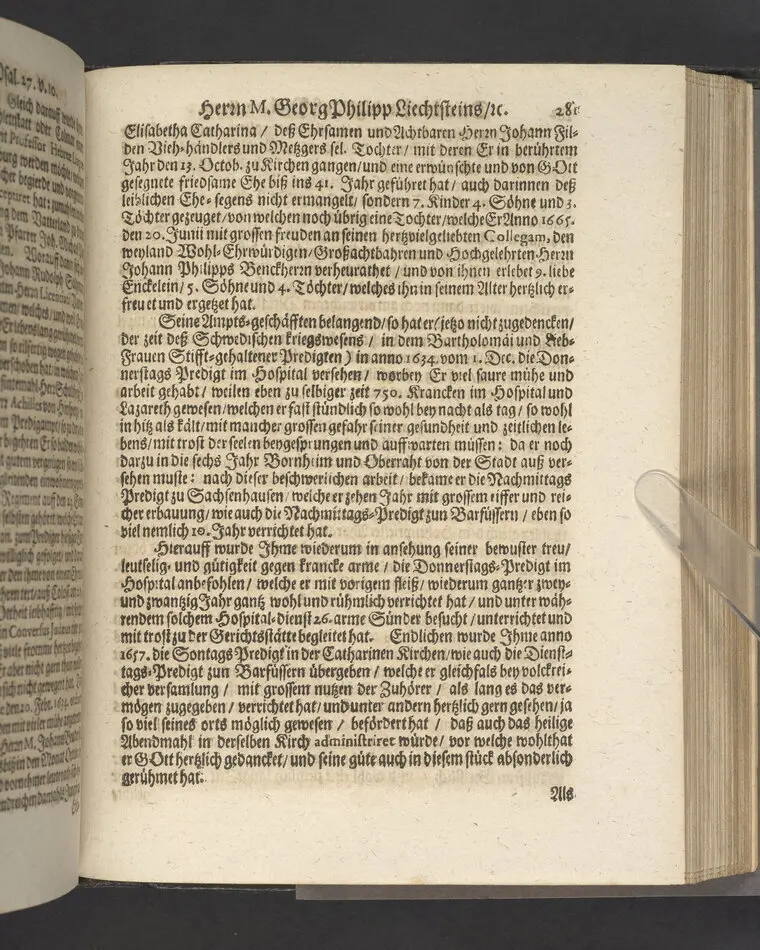 Psal. 27. v. 10.
Herrn M. Georg Philipp Liechtsteins/ ꝛc. 281
Elisabetha Catharina / deß Ehrsamen und Achtbaren Herrn Johann Fil-
den Vieh-händlers und Metzgers sel. Tochter / mit deren Er in berührtem
Jahr den 13. Octob. zu Kirchen gangen/ und eine erwünschte und von GOtt
gesegnete friedsame Ehe biß ins 41. Jahr geführet hat / auch darinnen deß
leiblichen Ehe-segens nicht ermangelt/ sondern 7. Kinder 4. Söhne und 3.
Töchter gezeuget/ von welchen noch übrig eine Tochter/ welche Er Anno 1665.
den 20. Junii mit grossen freuden an seinen hertzvielgeliebten Collegam, den
weyland Wohl-Ehrwürdigen/ Großachtbahren und Hochgelehrten Herrn
Johann Philipps Benckherrn verheurathet / und von ihnen erlebet 9. liebe
Enckelein/ 5. Söhne und 4. Töchter/ welches ihn in seinem Alter hertzlich er-
freuet und ergetzet hat.
Seine Ampts-geschäfften belangend/ so hat er (jetzo nicht zugedencken/
der zeit deß Schwedischen kriegswesens / in dem Bartholomäi und Lieb-
Frauen Stifft-gehaltener Predigten) in anno 1634. vom 1. Dec. die Don-
nerstags Predigt im Hospital versehen/ worbey Er viel saure mühe und
arbeit gehabt / weilen eben zu selbiger zeit 750. Krancken im Hospital und
Lazareth gewesen/ welchen er fast stündlich so wohl bey nacht als tag / so wohl
in hitz als kält/ mit mancher grossen gefahr seiner gesundheit und zeitlichen le-
bens/ mit trost der seelen beygesprungen und auffwarten müssen: da er noch
darzu in die sechs Jahr Bornheim und Oberraht von der Stadt auß ver-
sehen muste: nach dieser beschwerlichen arbeit / bekame er die Nachmittags
Predigt zu Sachsenhausen/ welche er zehen Jahr mit grossem eiffer und rei-
cher erbauung/ wie auch die Nachmittags-Predigt zun Barfüssern / eben so
viel nemlich 10. Jahr verrichtet hat.
Hierauff wurde Ihme wiederum in ansehung seiner bewuster treu/
leutselig- und gütigkeit gegen krancke arme / die Donnerstags-Predigt im
Hospital anbefohlen / welche er mit vorigem fleiß/ wiederum gantzer zwey-
und zwantzig Jahr gantz wohl und rühmlich verrichtet hat / und unter wäh-
rendem solchem Hospital-dienst 26. arme Sünder besucht/ unterrichtet und
mit trost zu der Gerichtsstätte begleitet hat. Endlichen wurde Ihme anno
1657. die Sontags Predigt in der Catharinen Kirchen/ wie auch die Dienst-
tags-Predigt zun Barfüssern übergeben / welche er gleichfals bey volckrei-
cher versamlung / mit grossem nutzen der Zuhörer / als lang es das ver-
mögen zugegeben / verrichtet hat/ und unter andern hertzlich gern gesehen/ ja
so viel seines orts möglich gewesen / befördert hat / daß auch das heilige
Abendmahl in derselben Kirch administriret würde/ vor welche wohlthat
er GOtt hertzlich gedancket/ und seine güte auch in diesem stück absonderlich
gerühmet hat.
Als